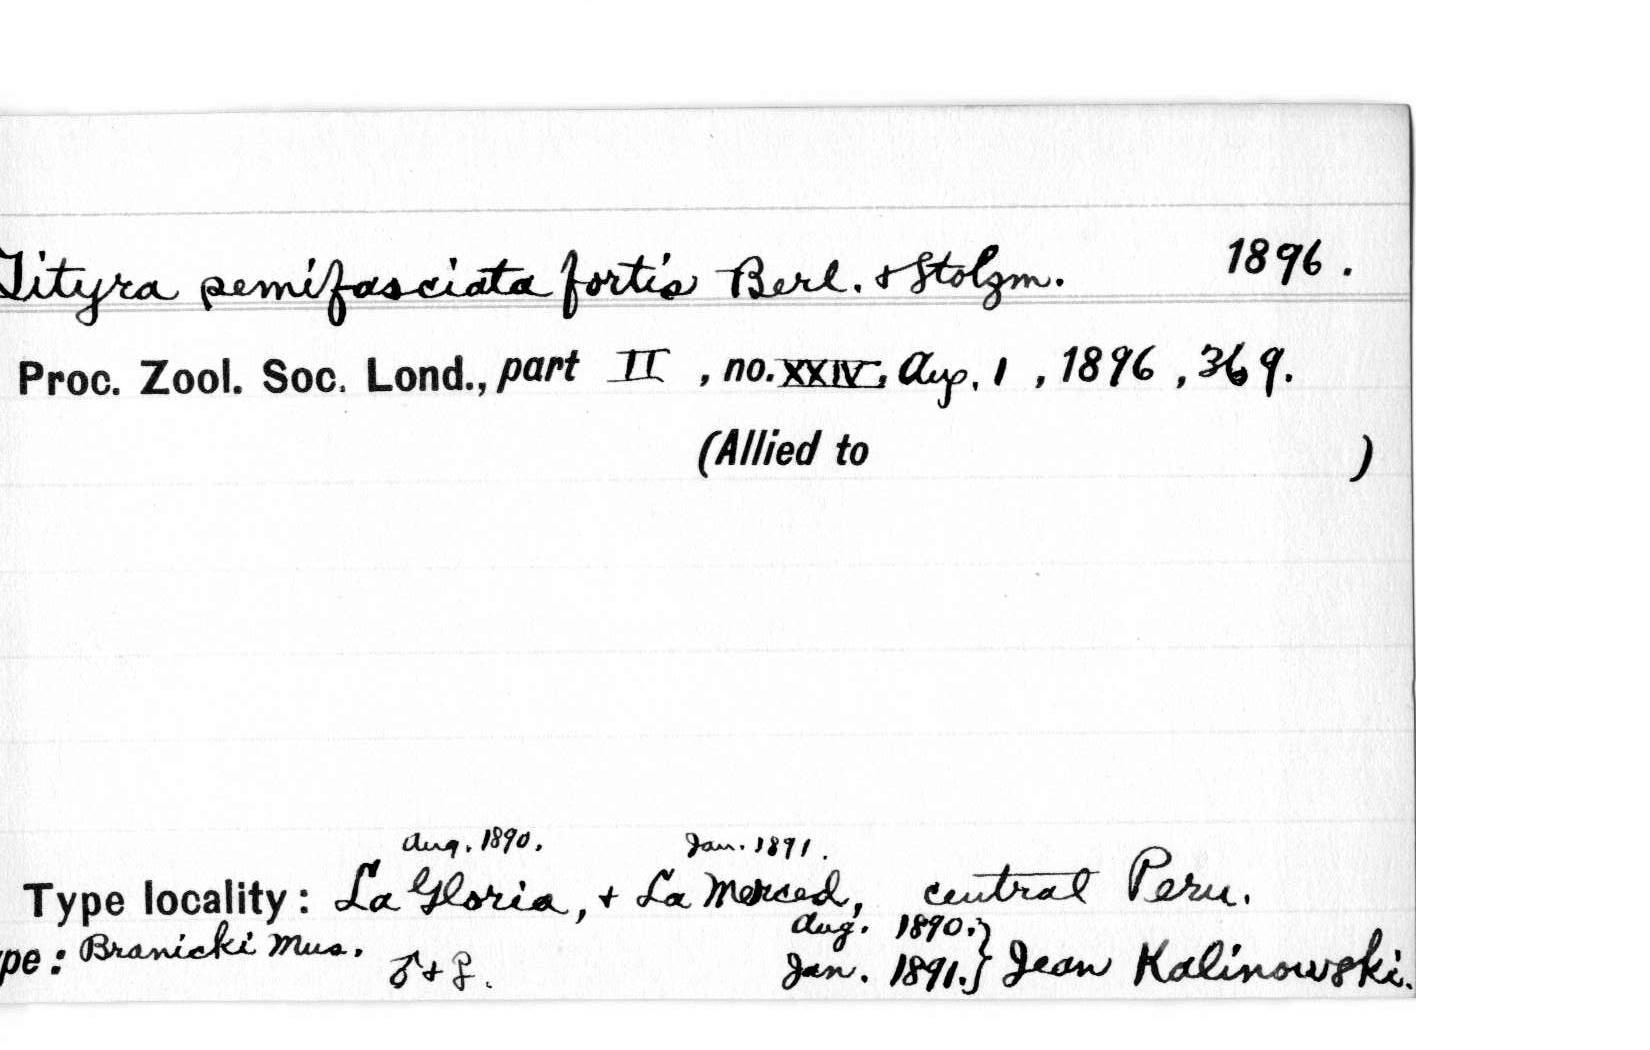 Tityra semifasciata fortis Berl. + Stolzm. 1896.
Proc. Zool. Soc. Lond., part II, no. XXIV, Aug. 1, 1896, 369.
(Allied to )
Aug. 1890. Jan. 1891.
Type locality: La Gloria, + La Merced, central Peru.
Aug. 1890.}
pe: Branicki Mus. ♂ + ♀. Jan. 1891.} Jean Kalinowski.